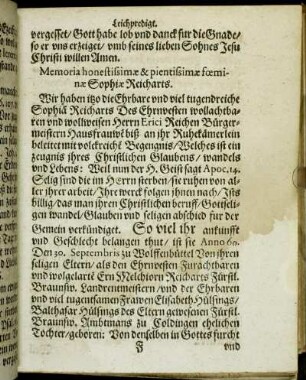 Leichpredigt.
vergesset/ Gott habe lob vnd danck fur die Gnade/
so er vns erzeiget/ vmb seines lieben Sohnes Jesu
Christi willen Amen.
Memoria honestissimæ & pientissimæ fœmi-
næ Sophiæ Reicharts.
Wir haben itzo die Ehrbare vnd viel tugendreiche
Sophiã Reicharts Des Ehrwesten wollachtba-
ren vnd wollweisen Herrn Erici Reichen Bürger-
meistern Hausfrauwẽ biß an ihr Ruhekämerlein
beleitet mit volckreichẽ Begengnis/ Welches ist ein
zeugnis ihres Christlichen Glaubens/ wandels
vnd Lebens: Weil nun der H. Geist sagt Apoc. 14.
Selig sind die im Herrn sterben/ sie ruhen von al-
ler ihrer arbeit/ Ihre werck folgen ihnen nach/ Ists
billig/ das man ihren Christlichen beruff/ Gottseli-
gen wandel/ Glauben vnd seligen abschied fur der
Gemein verkündiget. So viel ihr ankunfft
vnd Geschlecht belangen thut/ ist sie Anno 60.
Den 30. Septembris zu Wolffenbüttel Von ihren
seligen Eltern/ als den Ehrnvesten Furachtbaren
vnd wolgelarten Ern Melchiorn Reicharts Fürstl.
Braunsw. Landrentmeistern/ vnd der Ehrbaren
vnd viel tugentsamen Frawen Elisabeth Hülsings/
Balthasar Hülsings des Eltern gewesenen Fürstl.
Braunsw. Ambtmans zu Coldingen ehelichen
Tochter/ geboren: Von denselben in Gottes furcht
F vnd